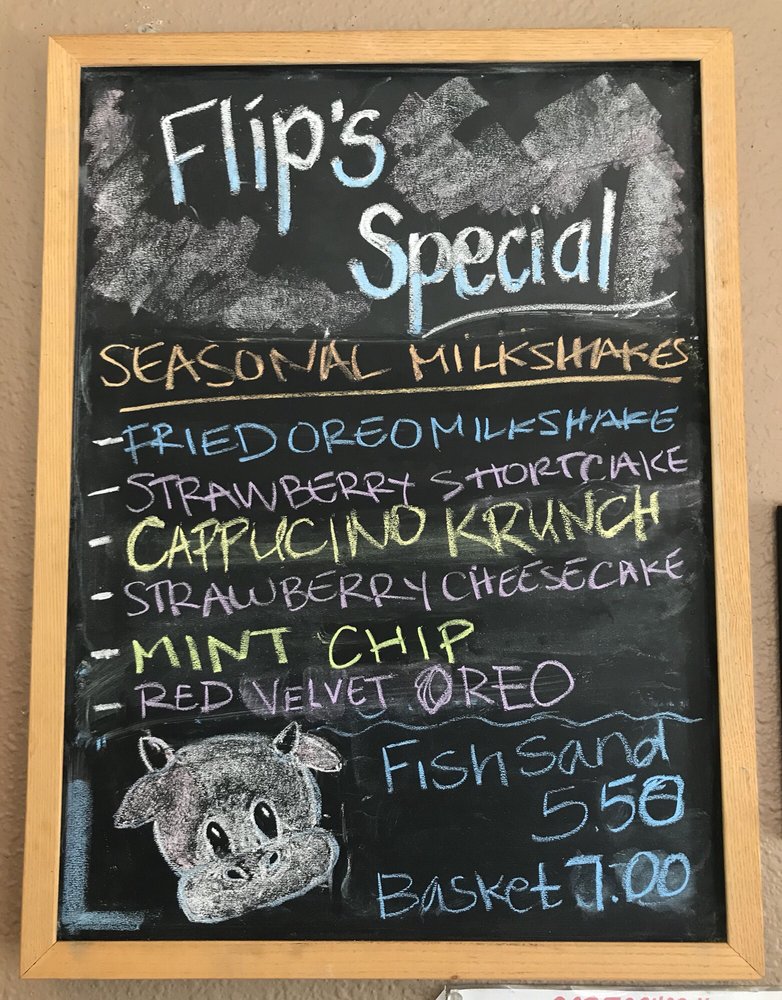 Flip's
Special
SEASONAL MILKSHAKES
- FRIED OREO MILKSHAKE
- STRAWBERRY SHORTCAKE
- CAPPUCINO KRUNCH
- STRAWBERRY CHEESECAKE
- MINT CHIP
- RED VELVET OREO
Fish Sand
5.50
Basket 7.00